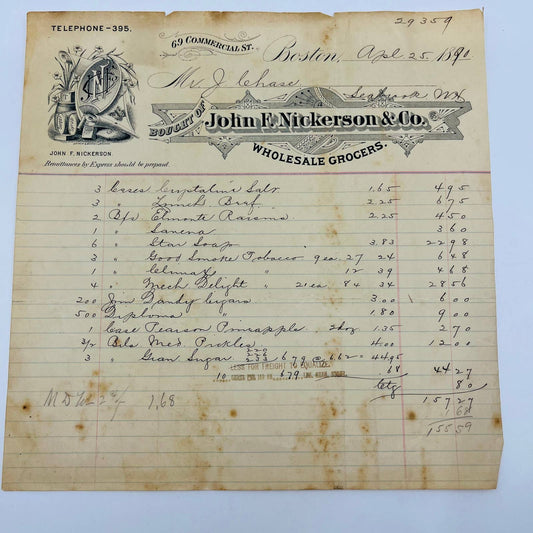 TELEPHONE-395.
29359
69 COMMERCIAL ST.
Boston, Apl. 25. 1890
Mr J. Chase
Seabrook NH
BOUGHT OF John F. Nickerson & Co.
WHOLESALE GROCERS.
JOHN F. NICKERSON
Remittances by Express should be prepaid.
3 Cases Salt 1.65 4 95
3 " Lunch Beef 2.25 6 75
2 Bxs Raisins 2.25 4 50
1 " 3 60
6 " Star Soap 3.83 22 98
3 " Good Smoke Tobacco 9 ea. 27 24 6 48
1 " Climax " 12 39 4 68
4 " Mech Delight " 21 ea 84 34 28 56
200 Jim Dandy Cigars 3 00 6 00
500 Diploma " 1.80 9 00
1 Case Pearson Pineapple 2 doz 1.35 2 70
Bls Med. Pickles 4 00 12 00
3 " Gran Sugar 220 226 233 679 @ 6.62 44.95
LESS FOR FREIGHT TO EQUALIZE .68 44 27
10 679
Ctg 80
157 27
1 68
155 59
1,68